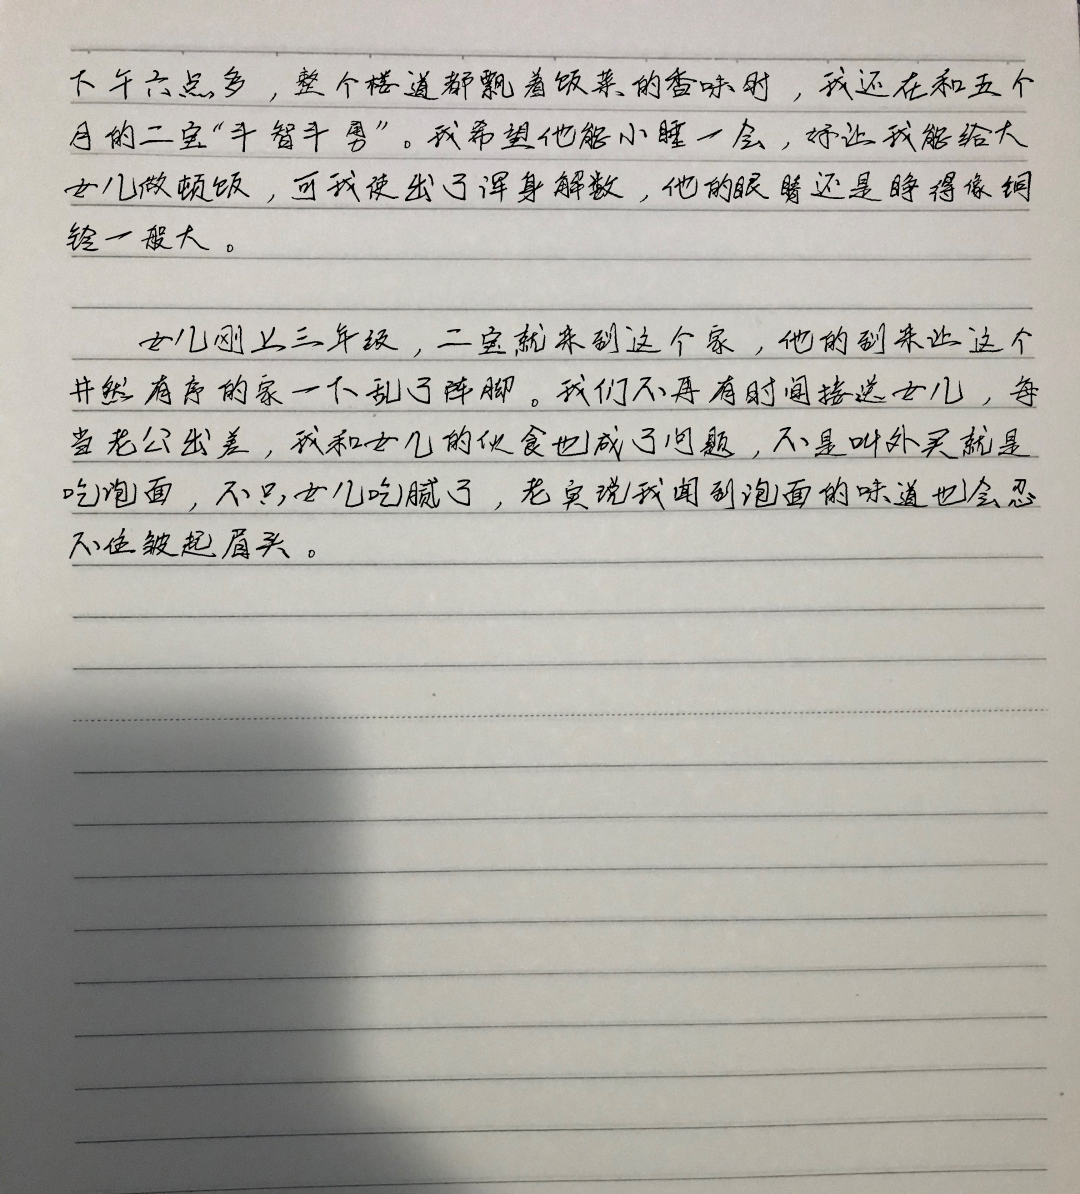 下午六点多，整个楼道都飘着饭菜的香味时，我还在和五个
月的二宝“斗智斗勇”。我希望他能小睡一会，好让我能给大
女儿做顿饭，可我使出了浑身解数，他的眼睛还是睁得像铜
铃一般大。
女儿刚上三年级，二宝就来到这个家，他的到来让这个
井然有序的家一下乱了阵脚。我们不再有时间接送女儿，每
当老公出差，我和女儿的伙食也成了问题，不是叫外买就是
吃泡面，不只女儿吃腻了，老实说我闻到泡面的味道也会忍
不住皱起眉头。